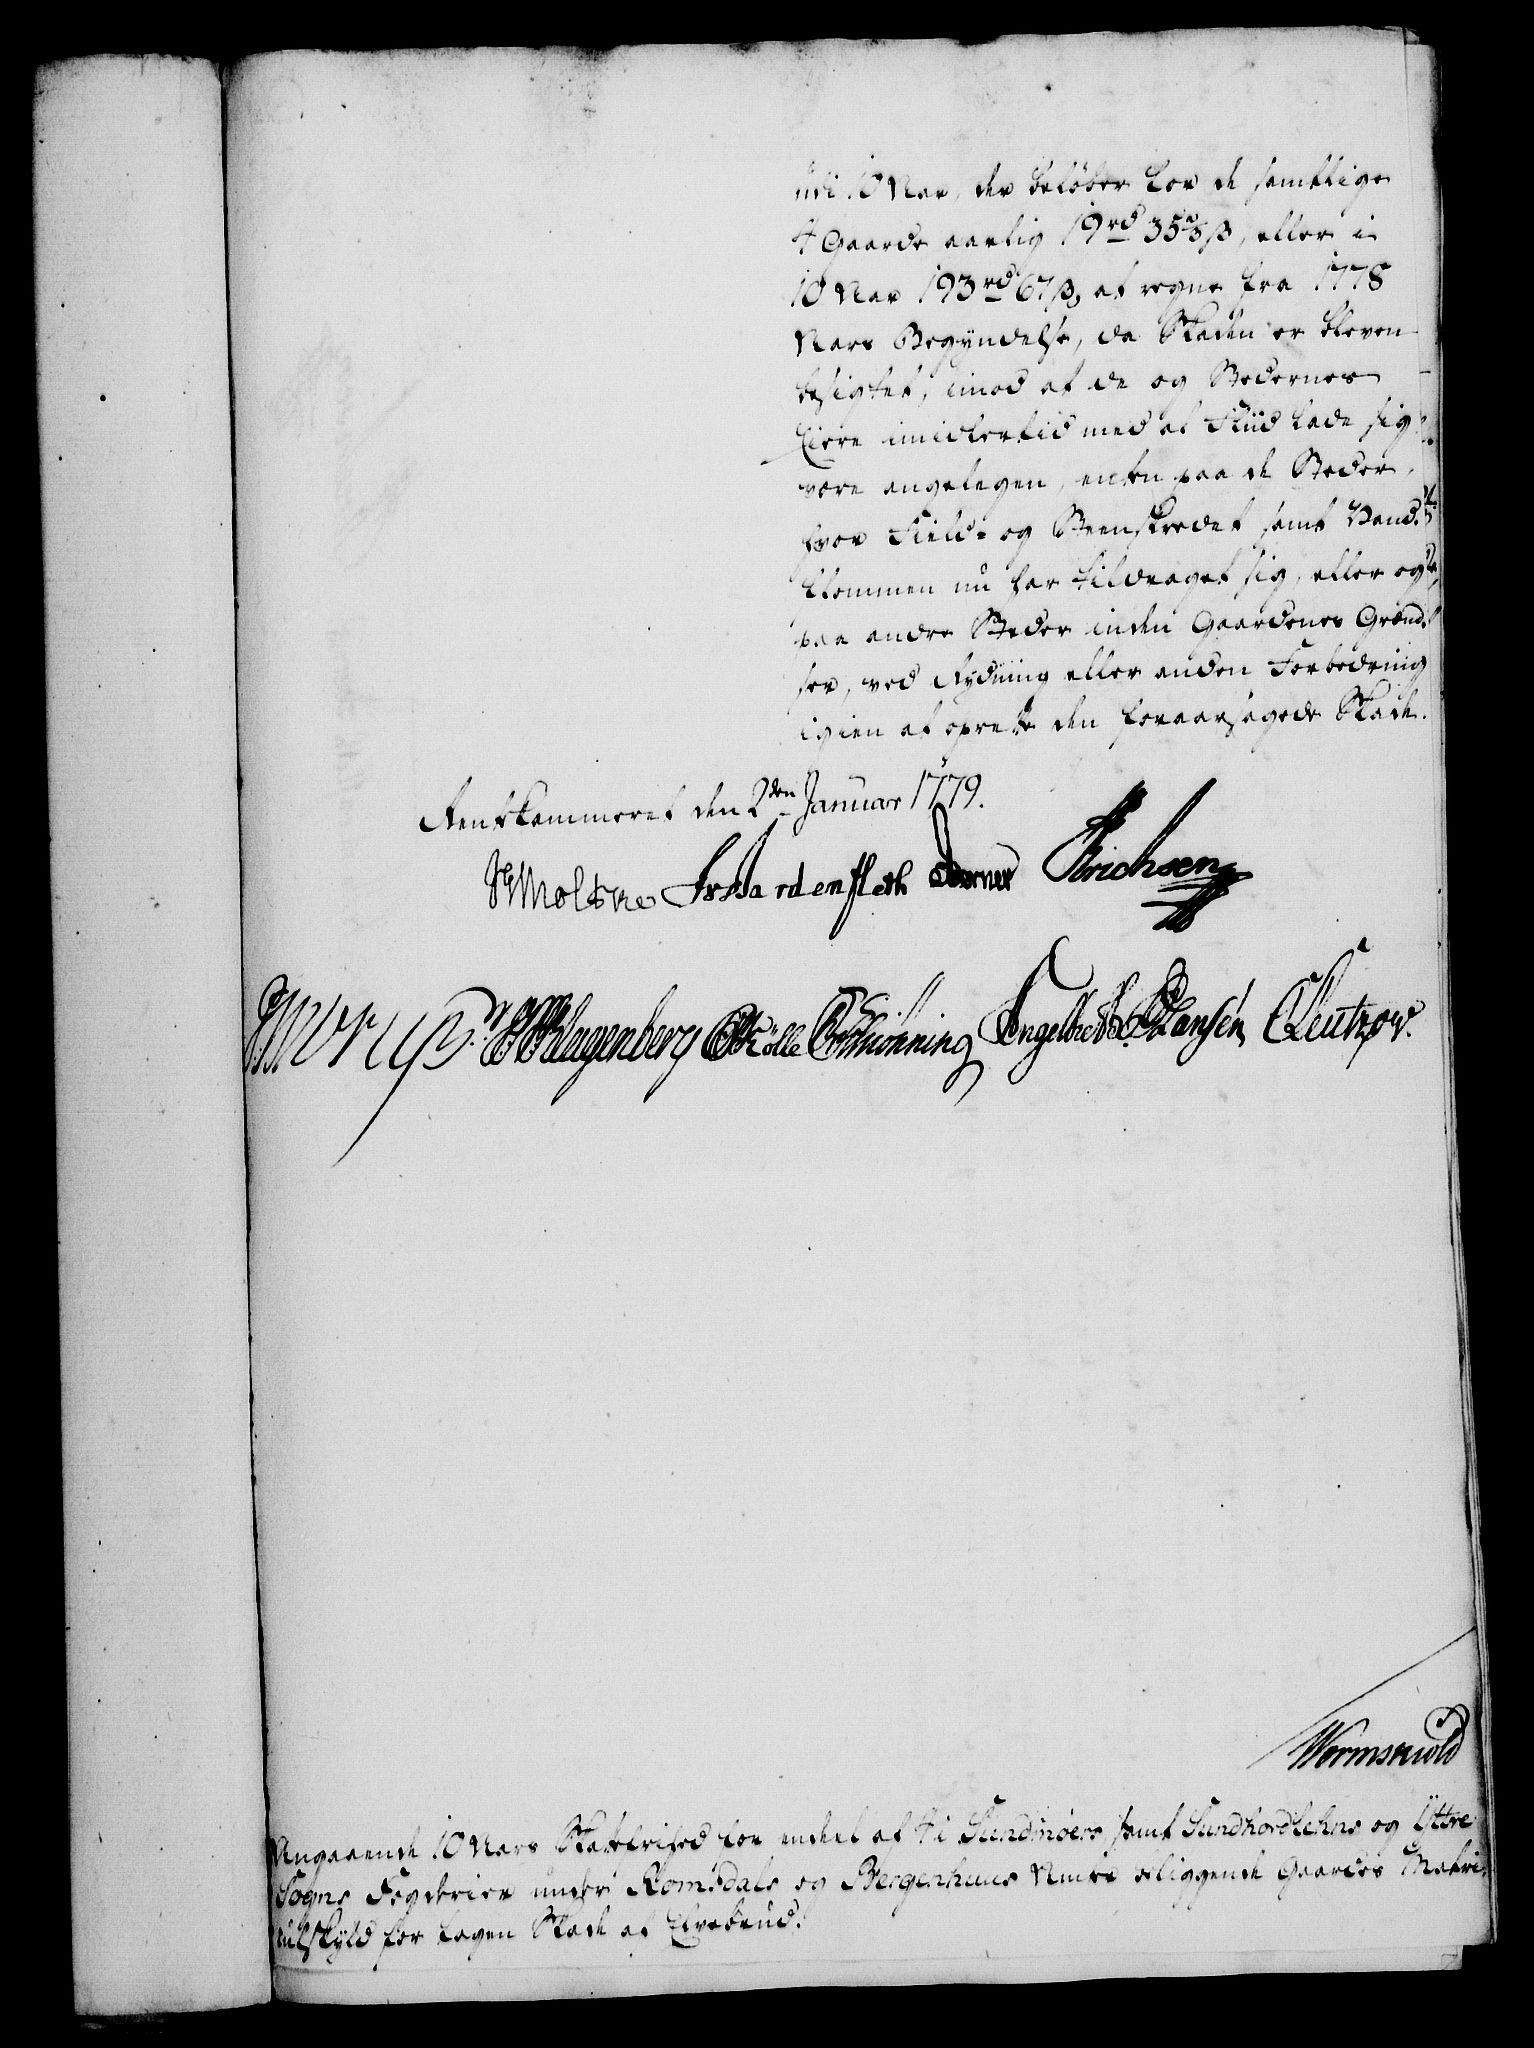 udi 10 Aar, der beløber for de samtlige
4 Gaarde aarlig 19rd 35⅔ß, eller i
10 Aar 193rd 67ß, at regne fra 1778
Aars Begyndelse, da Skaden er bleven
besigtet, imod at de og Stedernes
Eiere imidlertid med al Fliid lade sig
være angelegen, enten paa de Steder,
hvor Field- og Steenskredet samt Vand-
flommen nu har tildraget sig, eller og
paa andre Steder inden Gaardenes Grænd-
ser, ved Rydning eller anden Forbedring
igien at oprette den foraarsagede Skade.
Rentekammeret den 2den Januar 1779.
Moltke Wardenfleth Erichsen
Klagenberg Kølle Schiønning Engelbreth Hansén CLeutzow.
Wormskiold
Angaaende 10 Aars Skattefrihed for endeel af 4 i Sundmøers samt Sundhordlehns og Yttre
Sogns Fogderier under Romsdals og Bergenhuus Amter beliggende Gaardes Matri-
kulskyld for tagen Skade af Elvebrud.